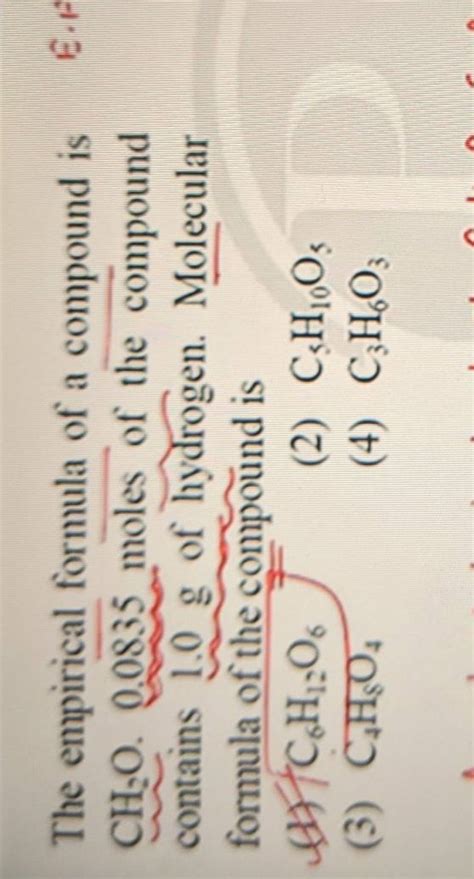 The empirical formula of a compound is
CH₂O. 0.0835 moles of the compound
contains 1.0 g of hydrogen. Molecular
formula of the compound is
(1) C₆H₁₂O₆ (2) C₅H₁₀O₅
(3) C₄H₈O₄ (4) C₃H₆O₃